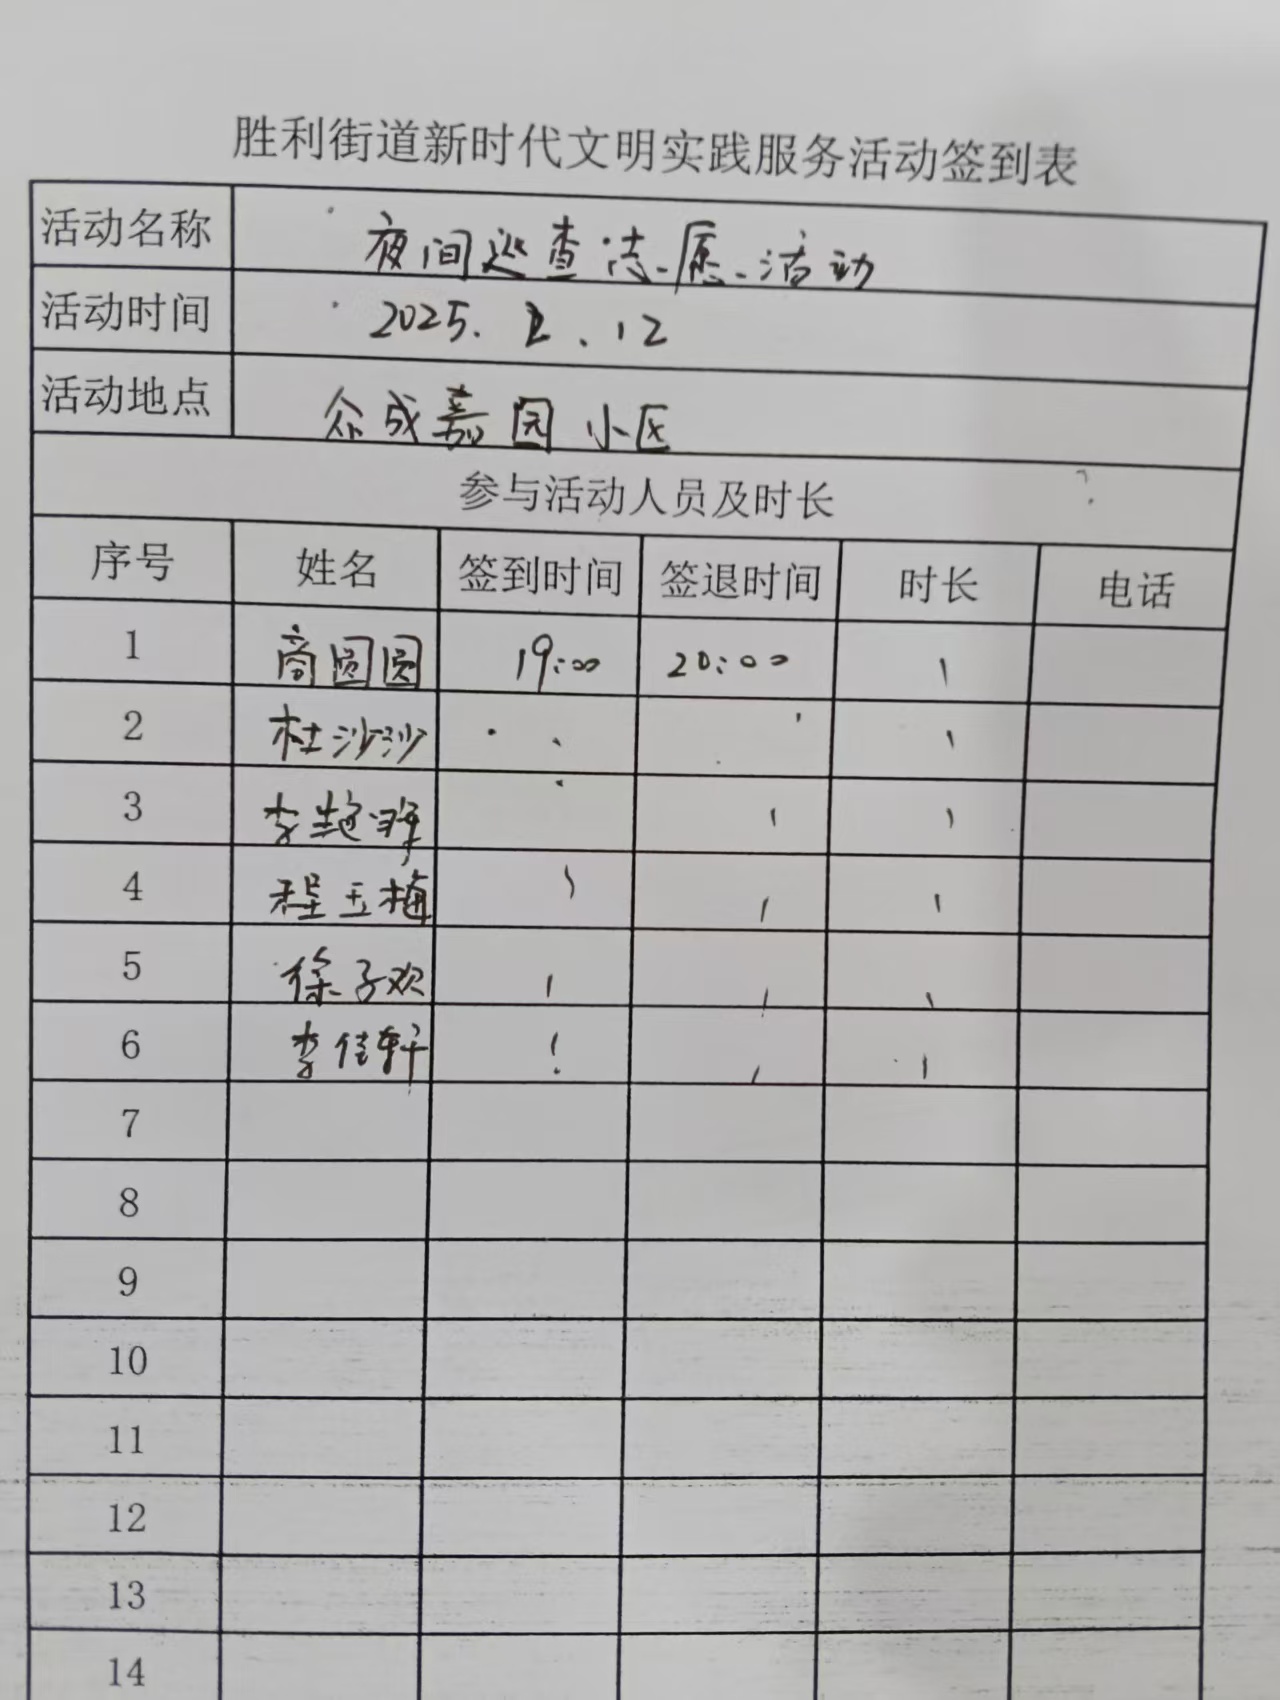 胜利街道新时代文明实践服务活动签到表
活动名称 夜间巡查志愿活动
活动时间 2025.2.12
活动地点 众成嘉园小区
参与活动人员及时长
序号 姓名 签到时间 签退时间 时长 电话
1 商圆圆 19:00 20:00 1
2 杜沙沙 1
3 李 1
4 程玉梅 1
5 徐子欢 1
6 李佳轩 1
7
8
9
10
11
12
13
14